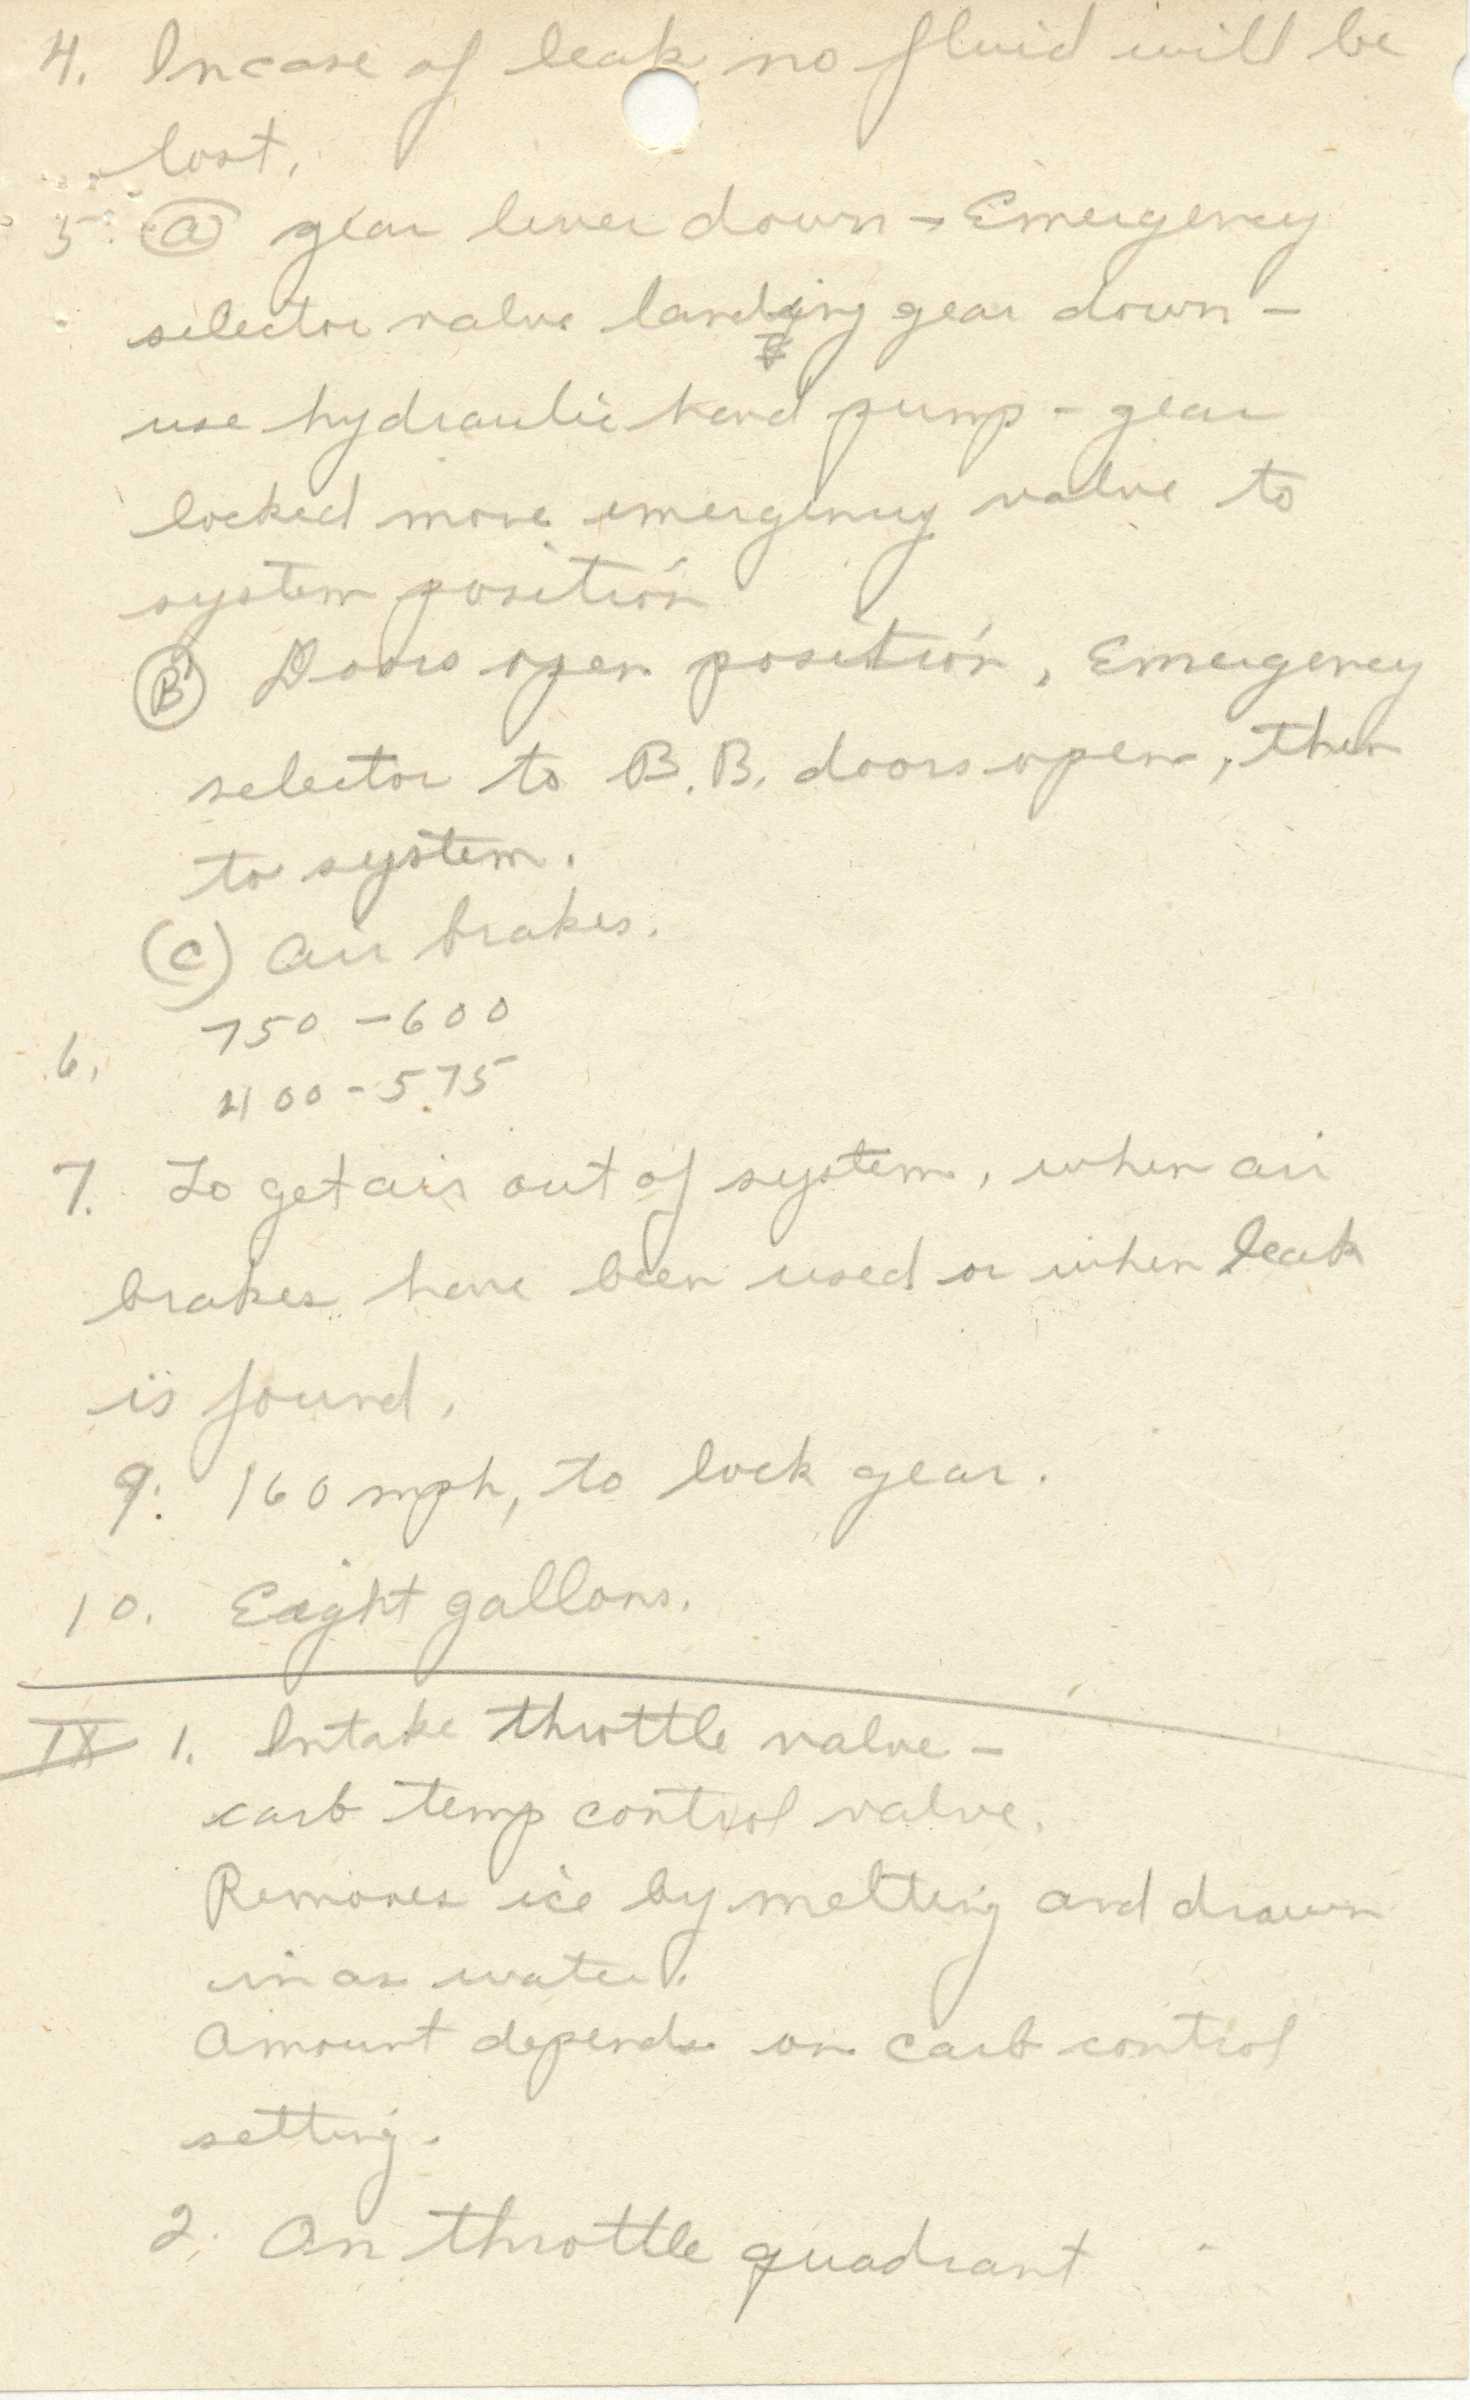 4. In case of leak no fluid will be
lost.
5. (a) gear lever down → Emergency
selector valve landing gear down -
use hydraulic hand pump - gear
locked move emergency valve to
system position
(B) Doors open position, Emergency
selector to B.B. doors open, then
to system.
(C) Air brakes.
6. 750 - 600
400 - 575
7. To get air out of system, when air
brakes have been used or when leak
is found.
9. 160 mph, to lock gear.
10. Eight gallons.
IX 1. Intake throttle valve -
carb temp control valve.
Removes ice by melting and drawn
in as water.
Amount depends on carb control
setting.
2. On throttle quadrant